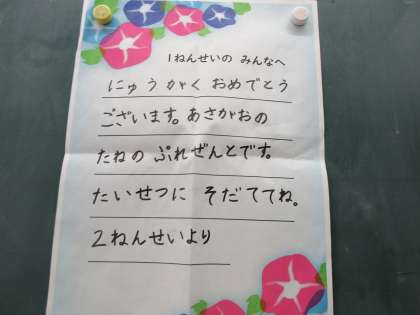 1ねんせいの みんなへ
にゅうがく おめでとう
ございます。あさがおの
たねの ぷれぜんとです。
たいせつに そだててね。
2ねんせいより